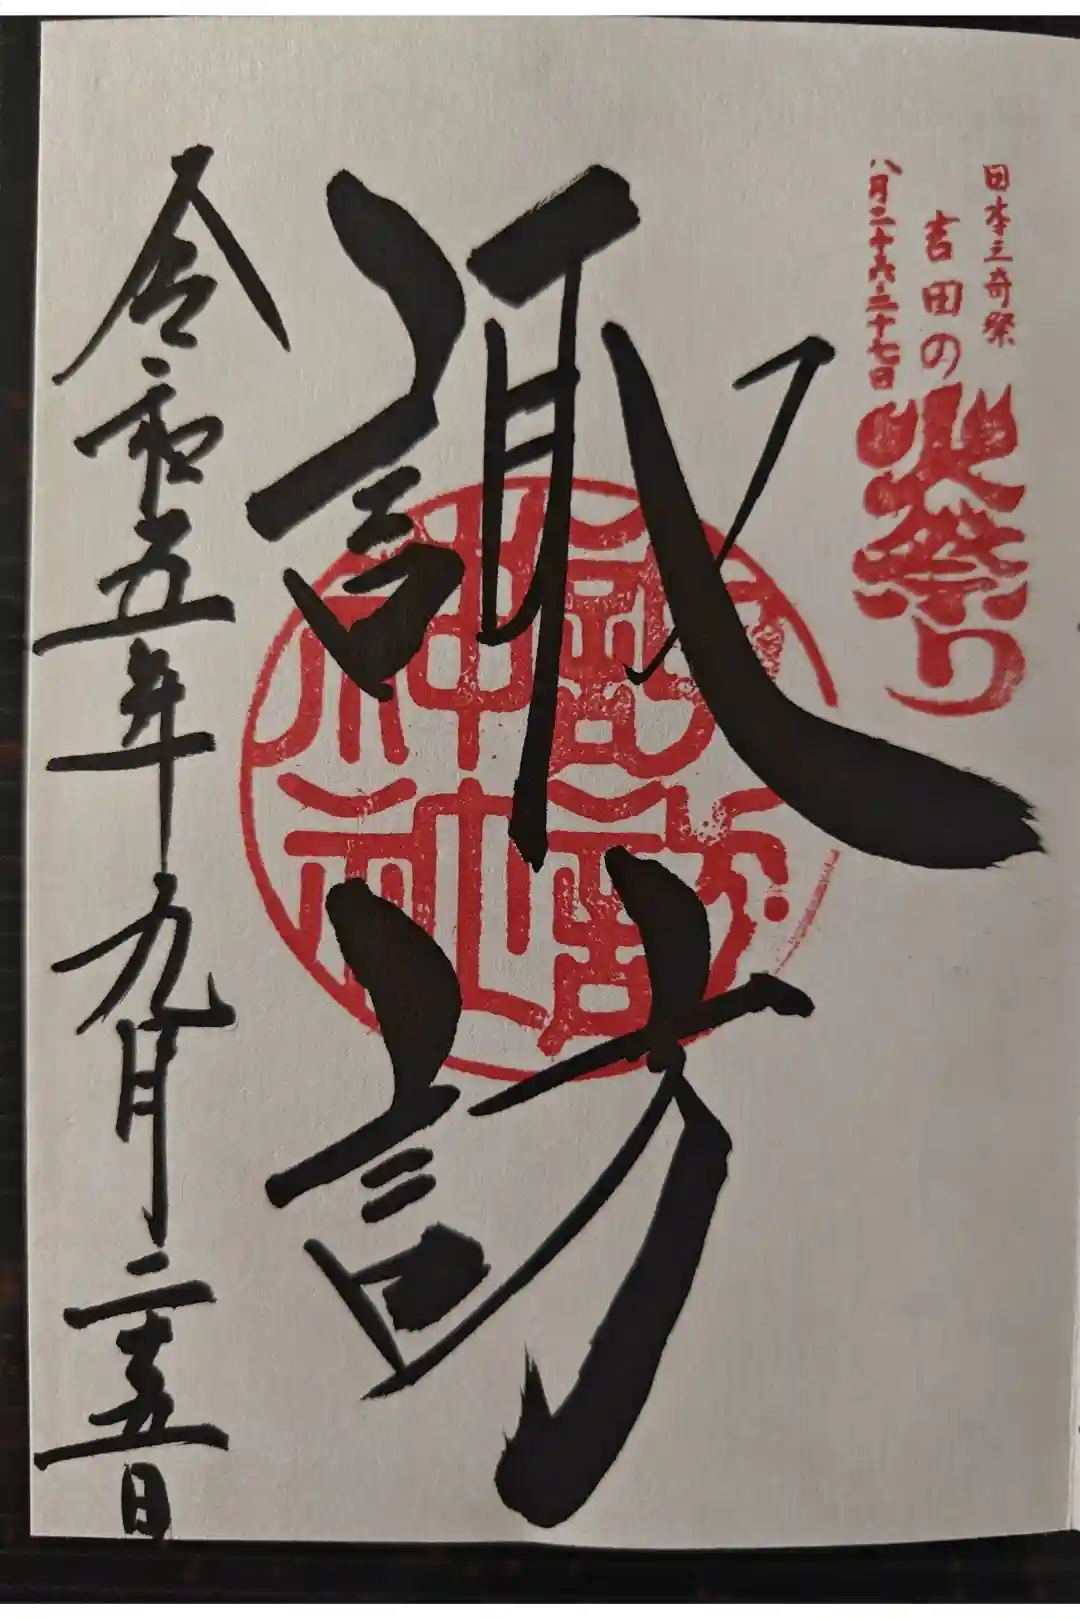 日本三奇祭
吉田の火祭り
八月二十六・二十七日
諏訪
諏訪
神社
令和五年九月二十五日